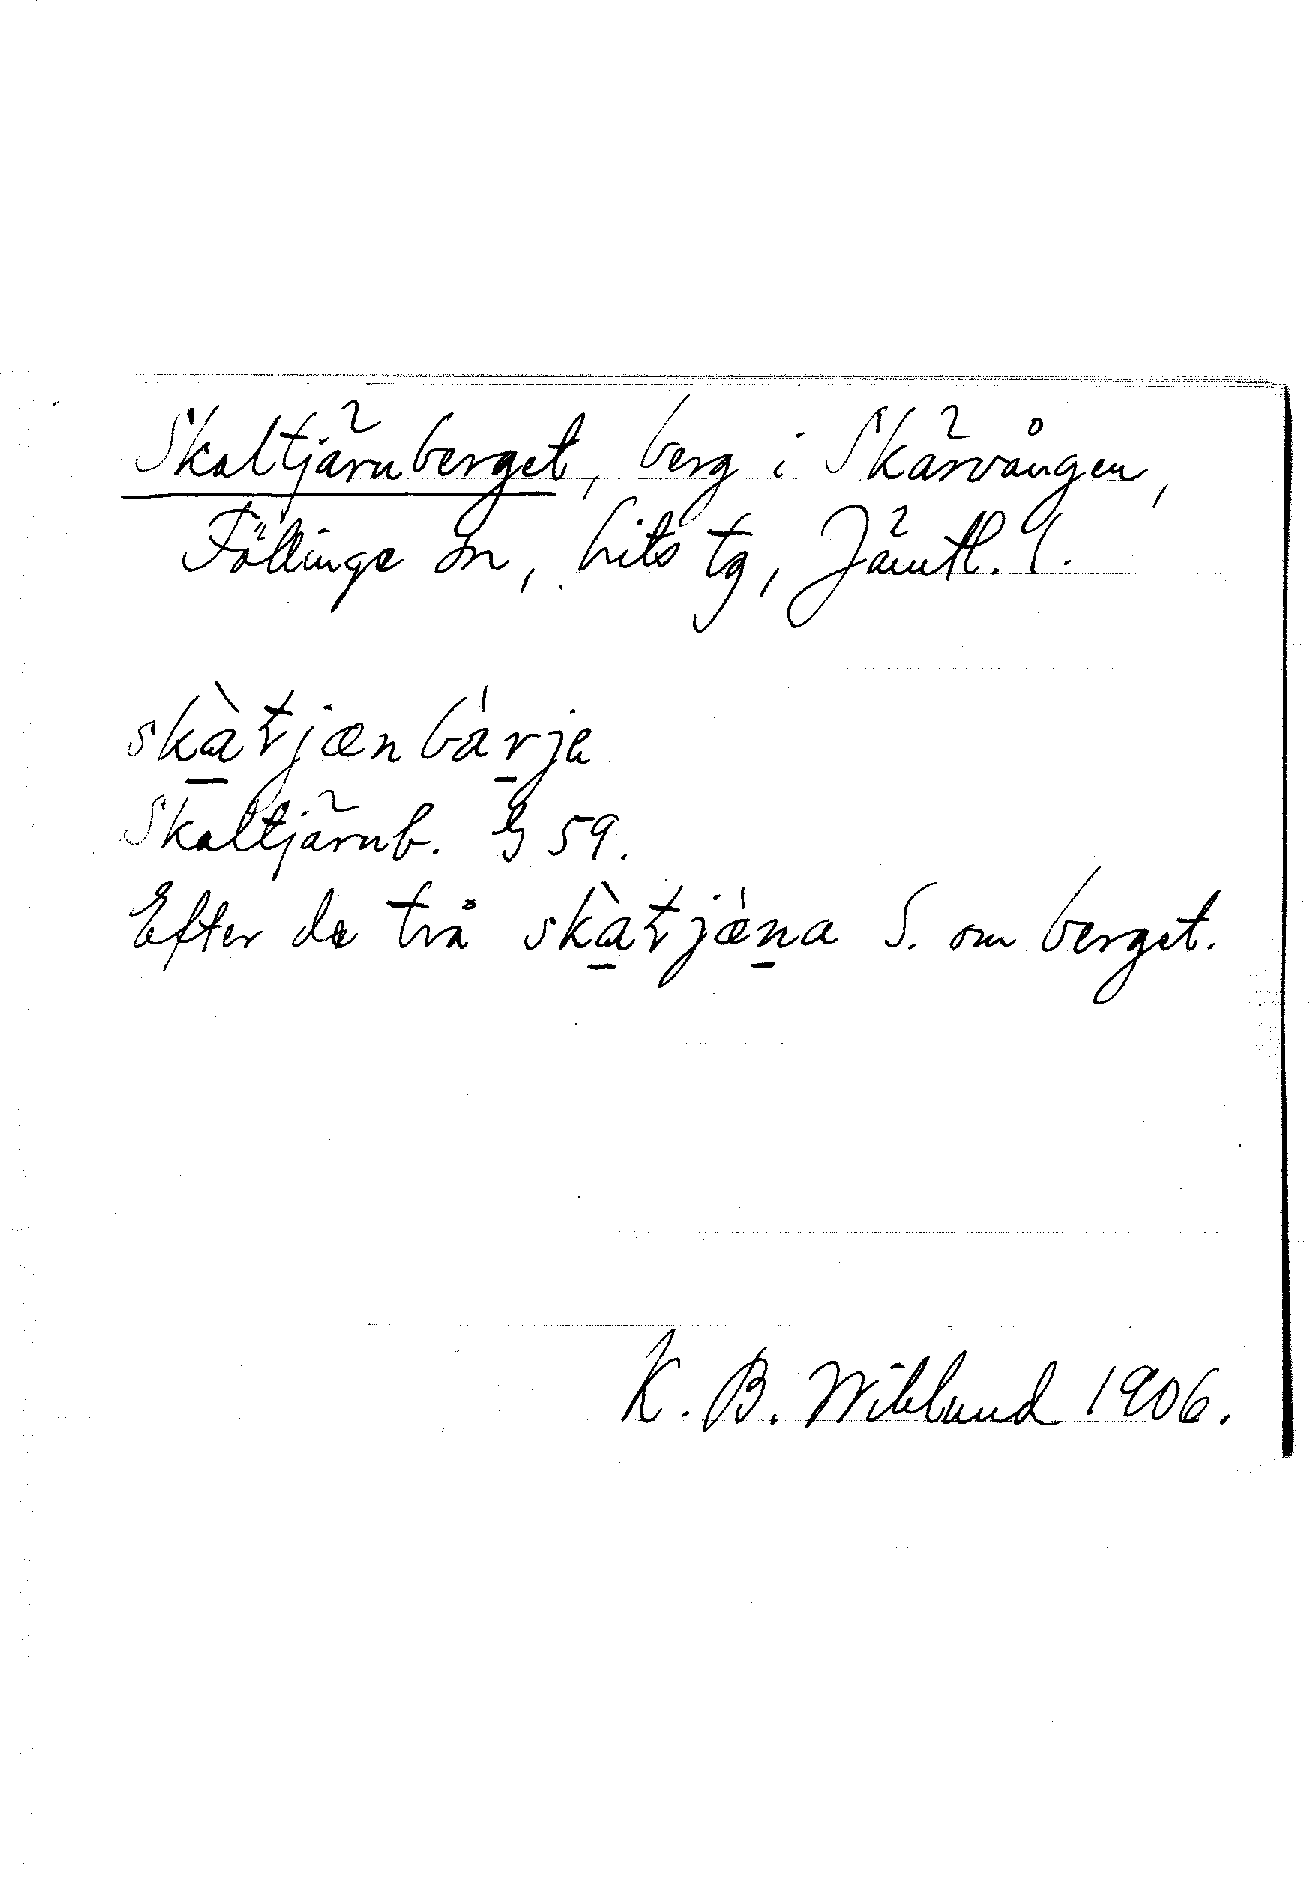 Skaltjärnberget, berg i Skärvången,
Föllinge sn, Lits tg, Jämtl. l.
skàtjænbárje
Skaltjärnb. G 59.
Efter de två skàtjǽna S. om berget.
K. B. Wiklund 1906.